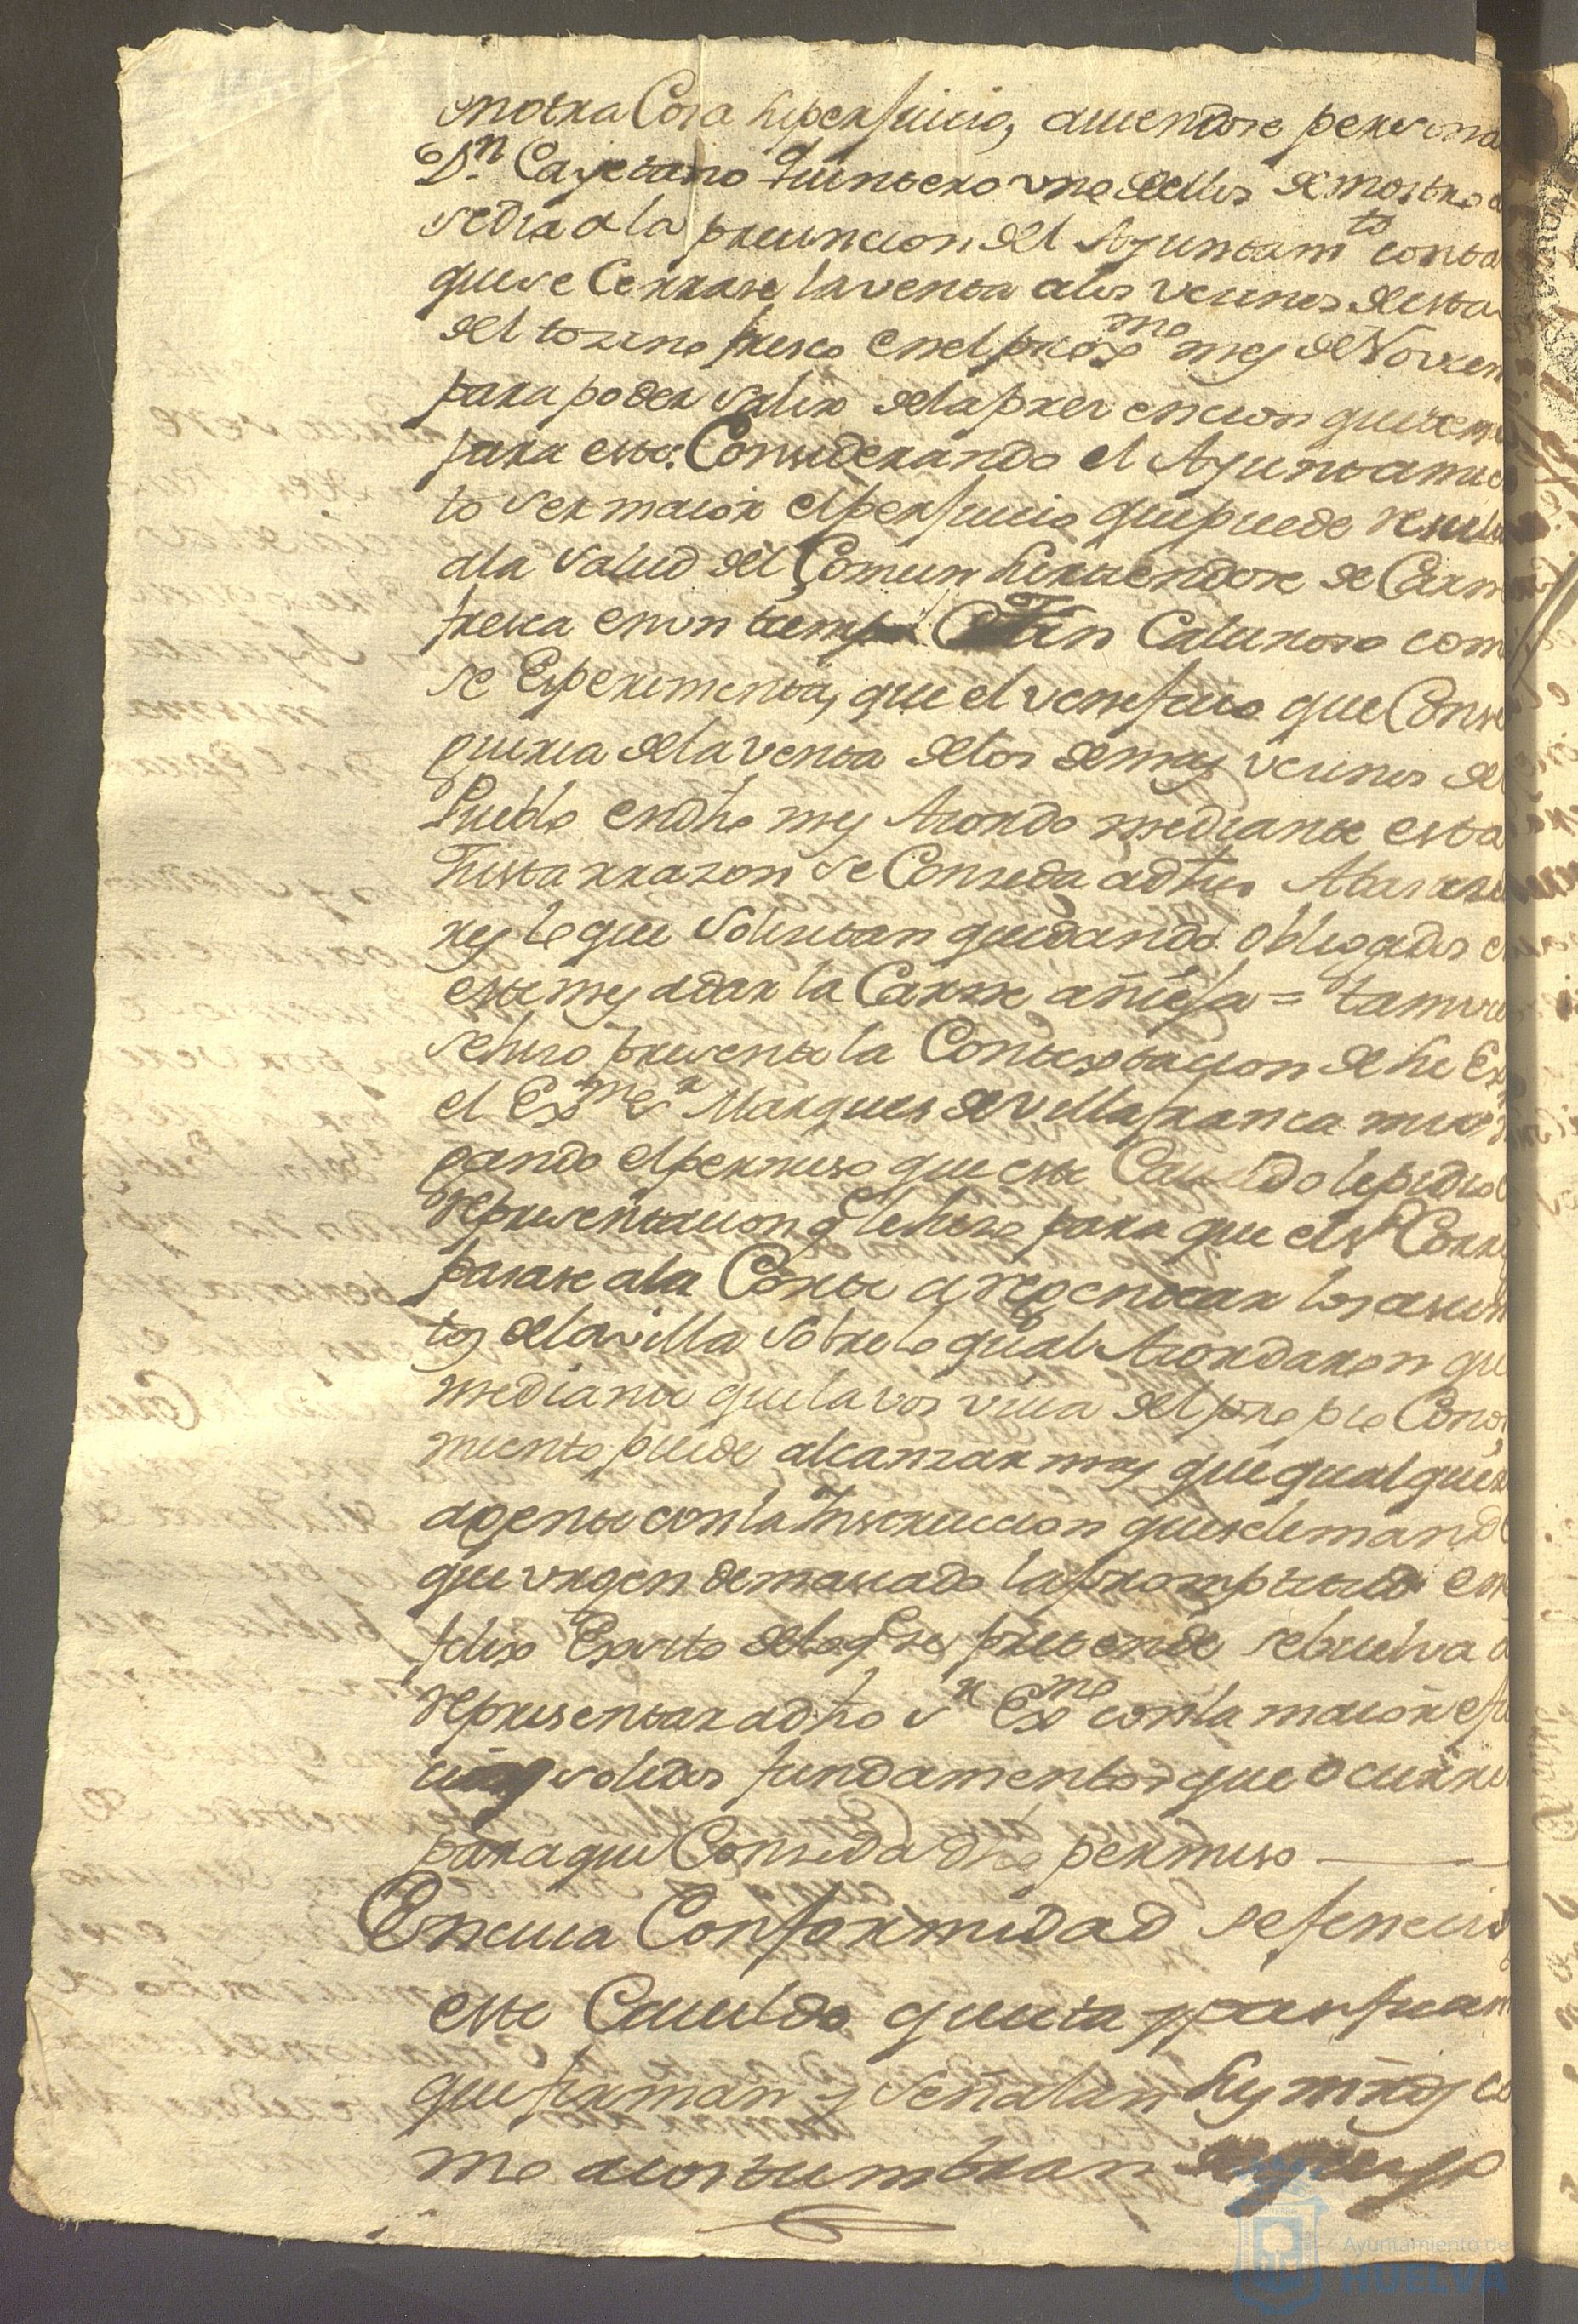 enotra Cosa su perjuicio, auiendose persona
Dn Cayetano Quintero uno dellos demostro
sedia a la preuencion del Ayuntamto conta
que se Cerrase la venta alos vecinos desta
del tozino fresco en el proxmo mes de Noviem
para poder salir dela prevencion que tiene
para esto: Considerando el Ayuntamien
to ser maior el perjuicio que puede resulta
ala salud del Comun surtiendose de Carne
fresca en un tiempo tan Caluroso com
se Experimenta, que el veneficio que Conse
guiria dela venta delos demas vecinos de
Pueblo en dho mes Acordo mediante esta
Justa rrazon se Conseda a dhos Abastese
res lo que solisitan quedando obligados e
este mes a dar la Carne añeja = tamvie
se hiso presente la Contextacion de su Ex
el Exmo Sr Marques de Villafranca mi sr
gando el permiso que este Cauildo le pidio
representacion q le hiso para que el Sr Corre
pasase ala Corte a regentear los asun
tos dela villa sobre lo qual Acordaron qu
mediante que la vos viva del propio Cono
miento puede alcanzar mas que qualquier
agente con la Instruccion que se le mand
que urgen demasiado la promptitud en
felix Exsito delo q se pretende se buelva a
representar a dho Sr Exmo con la maior efi
solidos fundamentos que ocurre
para que Conseda dho permiso
En cuia Conformidad se fenecio
este Cauildo quieta y pasifican
que firman y señalan sus mrds co
mo acostumbran
Ayuntamiento de
HUELVA